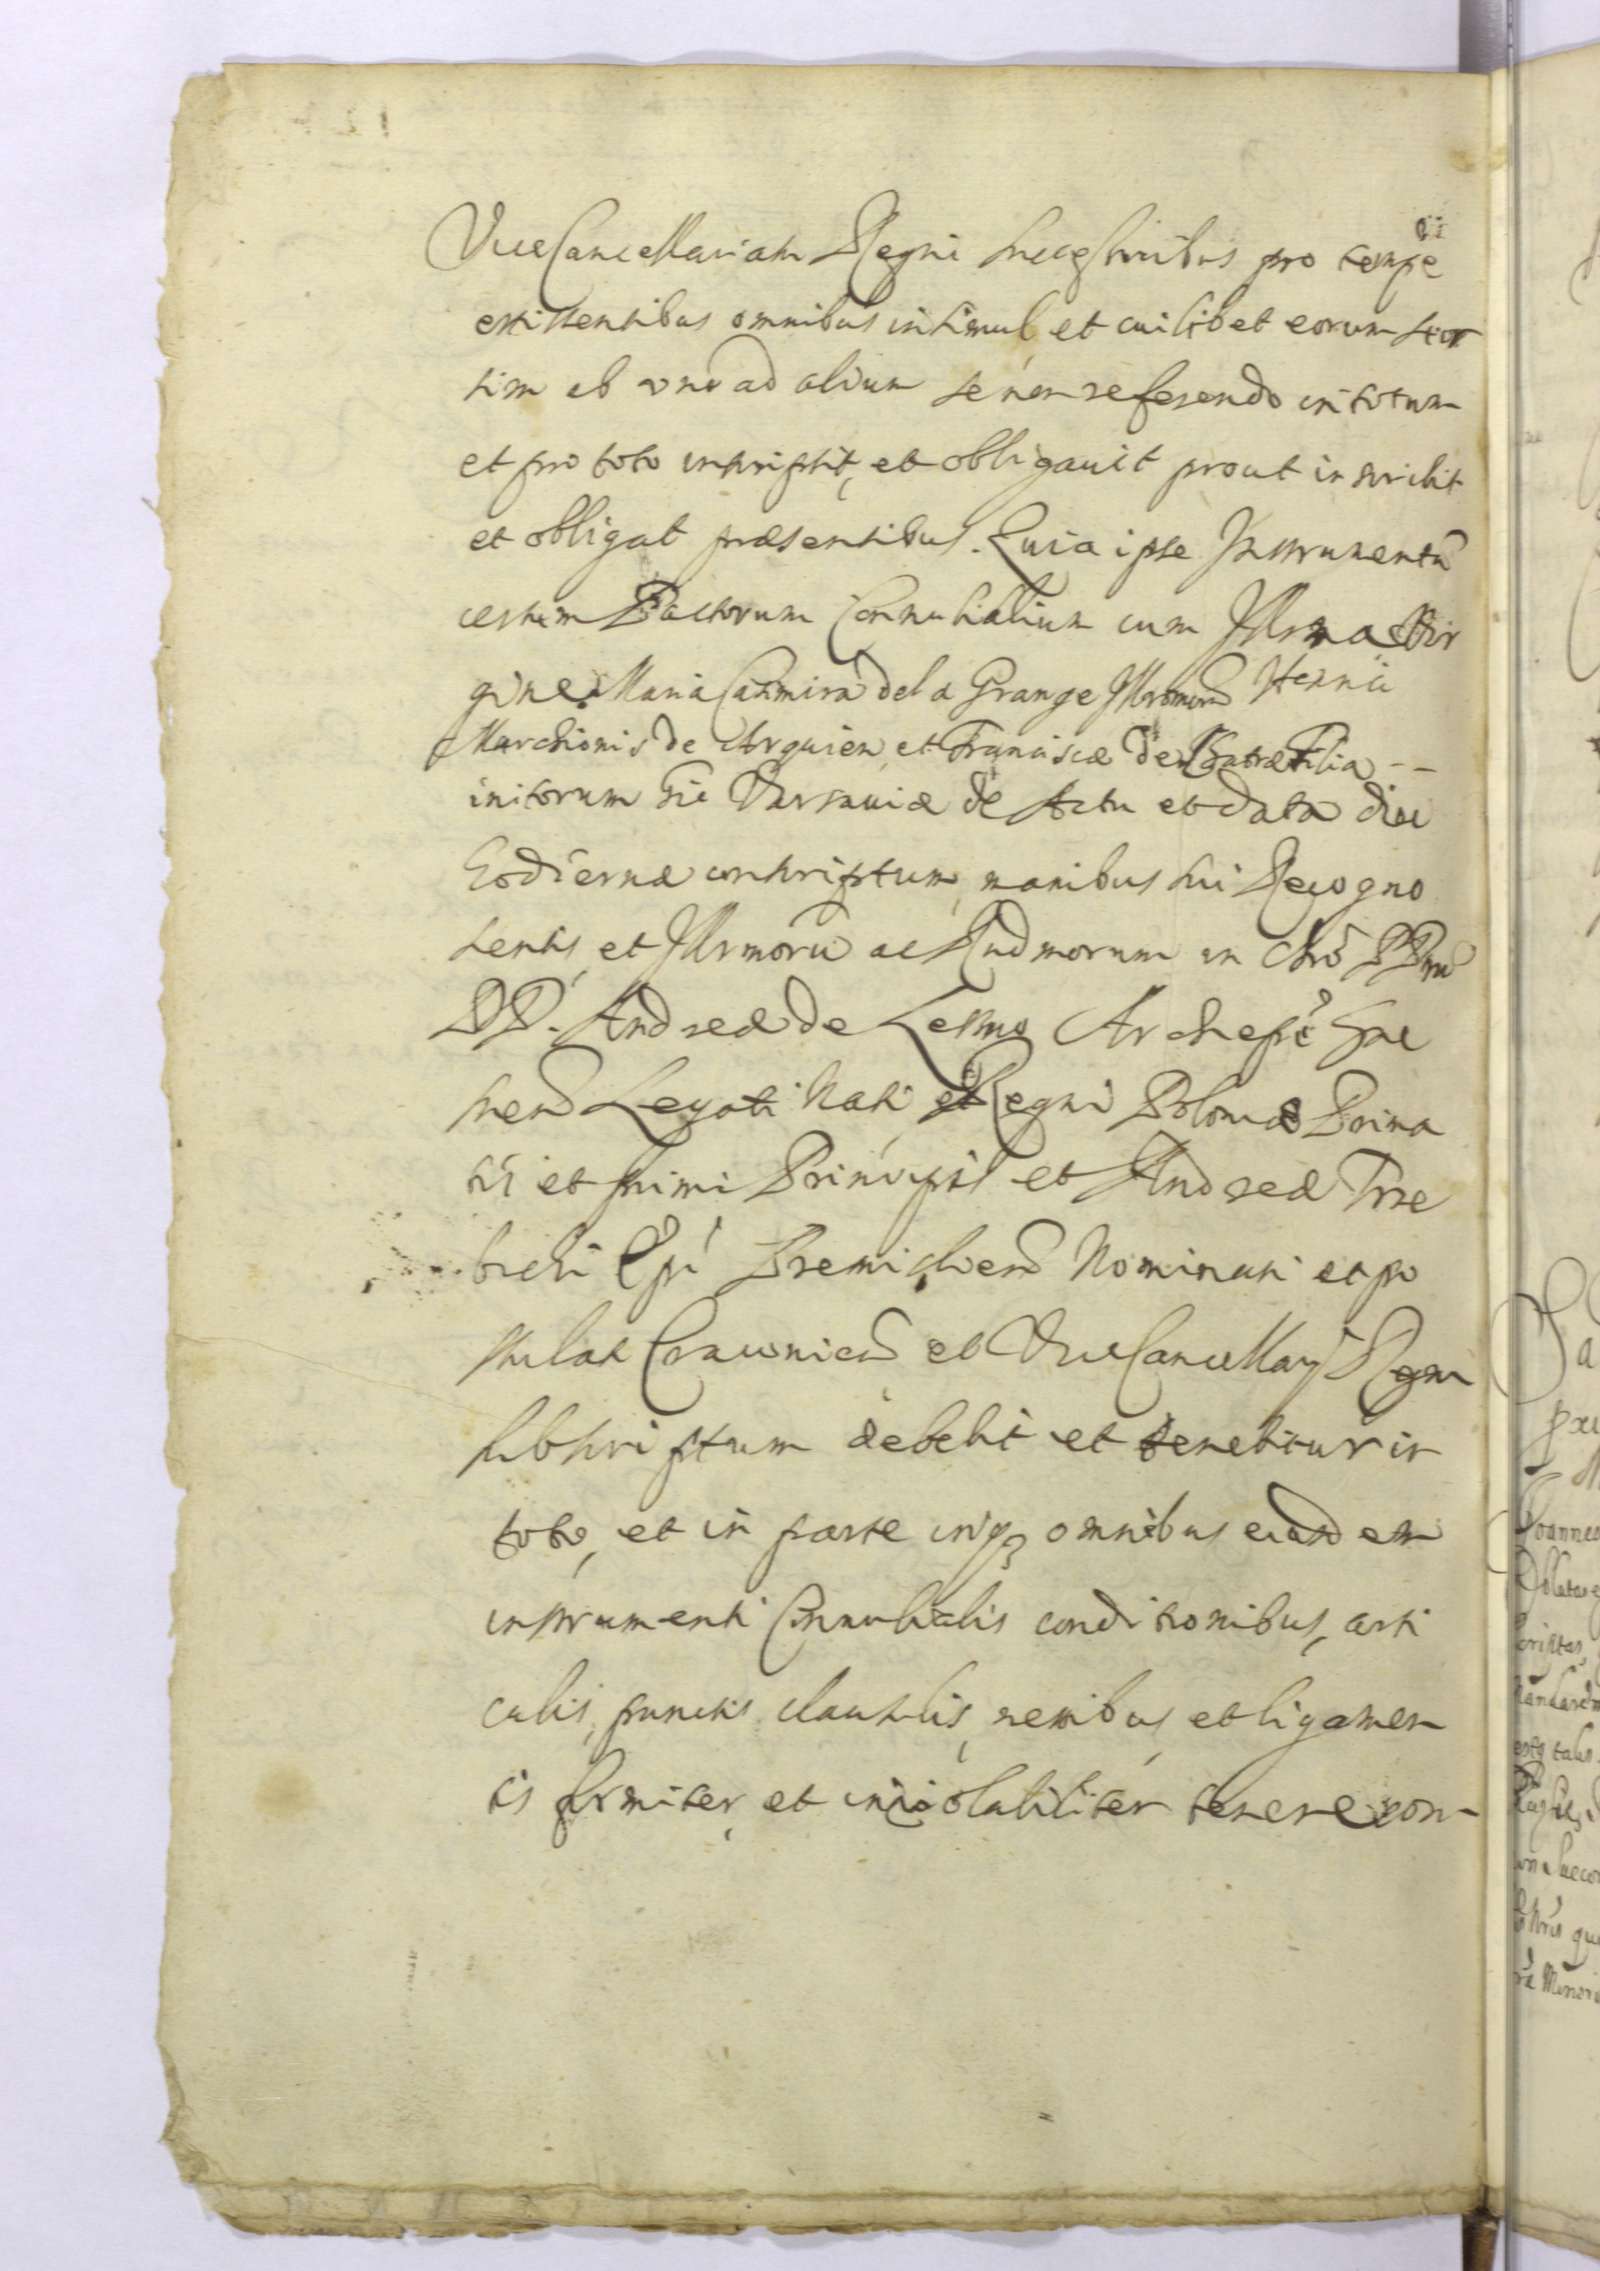 ViceCancellariatu Regni successoribus pro tempe
existentibus omnibus insimul et cuilibet eorum seor
sim ab uno ad alium se non referendo in totum
et pro toto inscripsit, et obligavit prout inscribit
et obligat præsentibus. Quia ipse Instrumentũ
certum Pactorum Connubialium cum Illrma Vir
gine Maria Casimira de la Grange Illrmorum Henrici
Marchionis de Arquien, et Franciscæ de la Chatre Filia --
initorum hic Varsaviæ de Actu et data diei
hodiernæ conscriptum, manibus sui Recogno
scentis, et Illrmorũ ac Rndmorum in Chro PPrũ
DD. Andreæ de Leszno Archiepi Gne
snen Legati Nati, et Regni Poloniæ Prima
tis et primi Principis et Andreæ Trze
bicki Epi Premislien Nominati et po
stulat Cracovien et ViceCancellarij Regni
subscriptum debebit et tenebitur in
toto, et in parte inq omnibus eiusdem
instrumenti Connubialis conditionibus, arti
culis, punctis clausulis, nexibus et ligamen
tis firmiter, et inviolabiliter tenere con-
Joannes